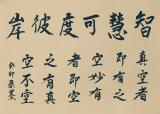 智慧可度彼岸
真空者
即有之
空妙有
者即空
之有真
空不空
癸卯